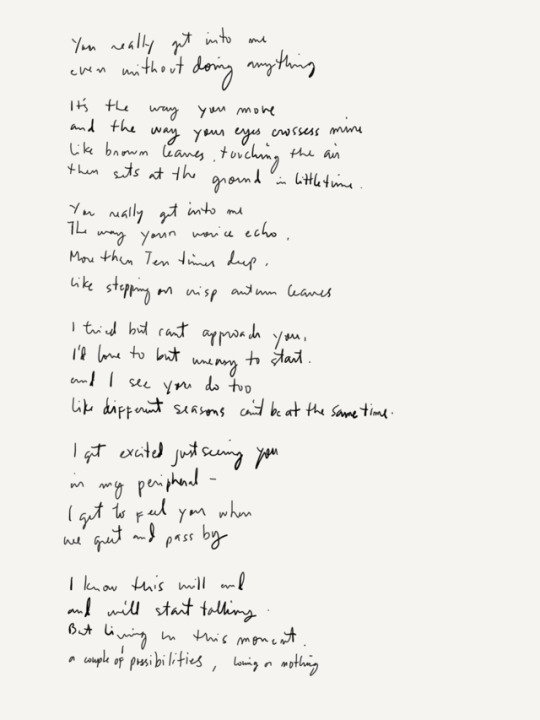 You really get into me
even without doing anything
It's the way you move
and the way your eyes crossess mine
like brown leaves touching the air
then sits at the ground in little time.
You really get into me
The way your voice echo.
More then Ten times deep.
like stepping on crisp autumn leaves
I tried but cant approach you.
I'd love to but uneasy to start.
and I see you do too
like different seasons can't be at the same time.
I get excited just seeing you
in my peripheral -
I get to feel you when
we greet and pass by
I know this will end
and will start talking.
But living in this moment.
a couple of possibilities, loving or nothing